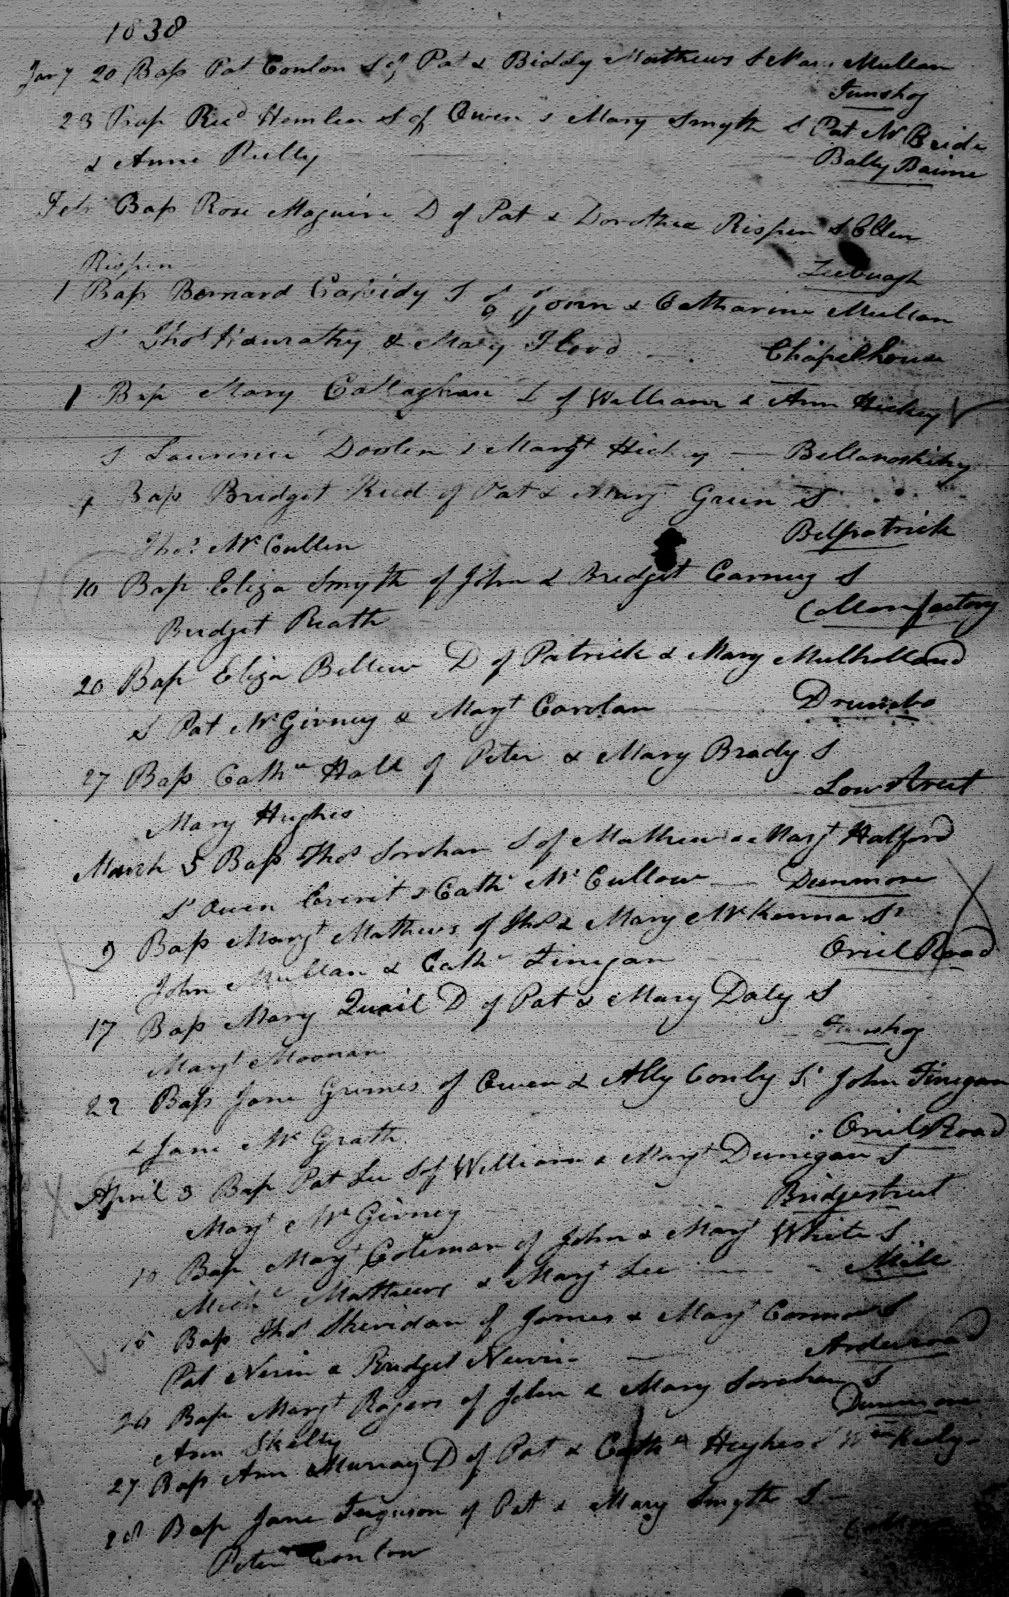 1838
Jany 20 Bap Pat Conlon S of Pat & Biddy Mathews S Mullan
Funshog
23 Bap Ricd Hamlen S of Owen & Mary Smyth S Pat McBride
& Anne Reilly Bally Baime
Feb Bap Rose Maguire D of Pat & Dorothea Rispin S Ellen
Rispin
1 Bap Bernard Cassidy S of John & Catharine Mullan
S Thos & Mary Flood Chapelhouse
1 Bap Mary Callaghan D of William & Ann Hickey
S Laurence Doolen & Margt Hickey
Bap Bridget Reed of Pat & Mary Green S
Thos McCullen Belpatrick
10 Bap Eliza Smyth of John & Bridget Carney S
Bridget Reath Collon factory
20 Bap Eliza Bellew D of Patrick & Mary Mulholland
S Pat McGivney & Margt Carolan Drumbo
27 Bap Cathne Hall of Peter & Mary Brady S
Mary Hughes Low Street
March 5 Bap Thos Sorohan S of Mathew & Margt Halford
S Owen & Cathe McCullow Dunmore
9 Bap Margt Mathews of Thos & Mary McKenna Sr
John Mullan & Cathe Finegan Oriel Road
17 Bap Mary Quail D of Pat & Mary Daly S
Margt Moonan Funshog
22 Bap Jane Grimes of Owen & Ally Conly Sr John Finegan
& Jane McGrath Oriel Road
April 3 Bap Pat Lee S of William & Margt Dunegan S
Margt McGivney Bridgestreet
10 Bap Margt Coleman of John & Margt White S
Michl Matthews & Margt Lee Mill
15 Bap Thos Sheridan of James & Margt Connor S
Pat Nevin & Bridget Nevin Ardeeroad
26 Bap Margt Rogers of John & Mary Sorohan S
Ann Skelly Dunmore
27 Bap Ann Murray D of Pat & Cathe Hughes S Wm
28 Bap Jane Ferguson of Pat & Mary Smyth S
Peter Conlon